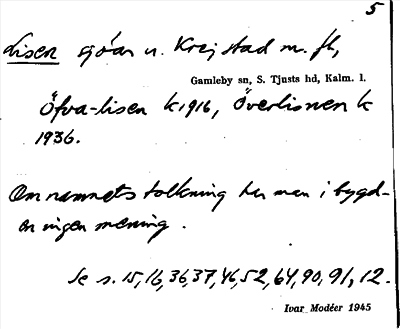 5
Lisen sjöar n. Krejstad m. fl,
Gamleby sn, S. Tjusts hd, Kalm. l.
Öfra-lisen k 1916, Överlisnen k
1936.
Om namnets tolkning har man i bygd-
en ingen mening.
Se s. 15, 16, 36, 37, 46, 52, 64, 90, 91, 12.
Ivar Modéer 1945